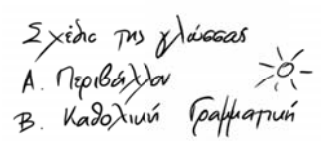 Σχέδιο της γλώσσας
Α. Περιβάλλον
Β. Καθολική Γραμματική